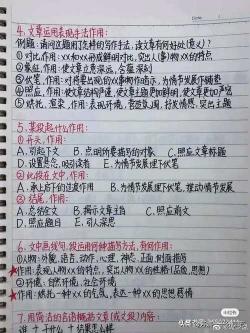 4. 文章运用表现手法作用:
例题: 请问这题用了怎样的写作手法, 读文章有何好处(意义)?
① 对比作用: XX和XX形成鲜明对比, 突出人(事)物XX的特点
② 象征, 作用: 使文章立意深远, 含蓄深刻
③ 伏笔, 作用: 对将要出现的XX事物作暗示, 为情节发展作铺垫
④ 照应, 作用: 使文章结构严谨, 使文章主题更加鲜明, 使文章更加严密
⑤ 烘托, 渲染, 作用: 表现环境, 营造氛围, 抒发情感, 突出主题
5. 某段起什么作用:
① 开头, 作用:
A. 引起下文 B. 点明所要描写的对象 C. 照应文章标题
D. 设置悬念, 吸引读者 E. 为情节发展埋下伏笔
② 此段在文中, 作用:
A. 承上启下的过渡作用 B. 为情节发展埋下伏笔, 推动情节发展
③ 结尾, 作用:
A. 总结全文 B. 揭示文章主旨 C. 照应前文
D. 照应题目 E. 引人深思
6. 文中画线句, 段运用何种描写方法, 有何作用:
① 人物: 外貌, 语言, 动作, 心理, 神态, 正面, 侧面描写
作用: 表现人物XX的特点, 突出人物XX的性格(品质, 思想)
② 环境: 自然环境, 社会环境
作用: 烘托一种XX的气氛, 表达一种XX的思想感情
7. 用简洁的名语概括文章(或文段)内容:
谁 + 干什么 + 结果怎么样
小红书